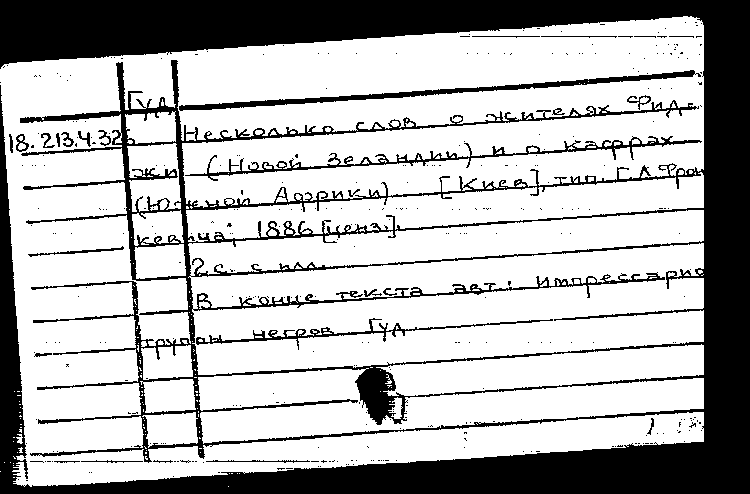 Гуд
18.213.4.325 Несколько слов о жителях Фид-
жи (Новой Зеландии) и о кафрах
(Южной Африки) [Киев], тип. Г.Л. Фрон
кевича, 1886 [ценз.].
2 с. с илл.
В конце текста авт.: импрессарио
труппы негров Гуд